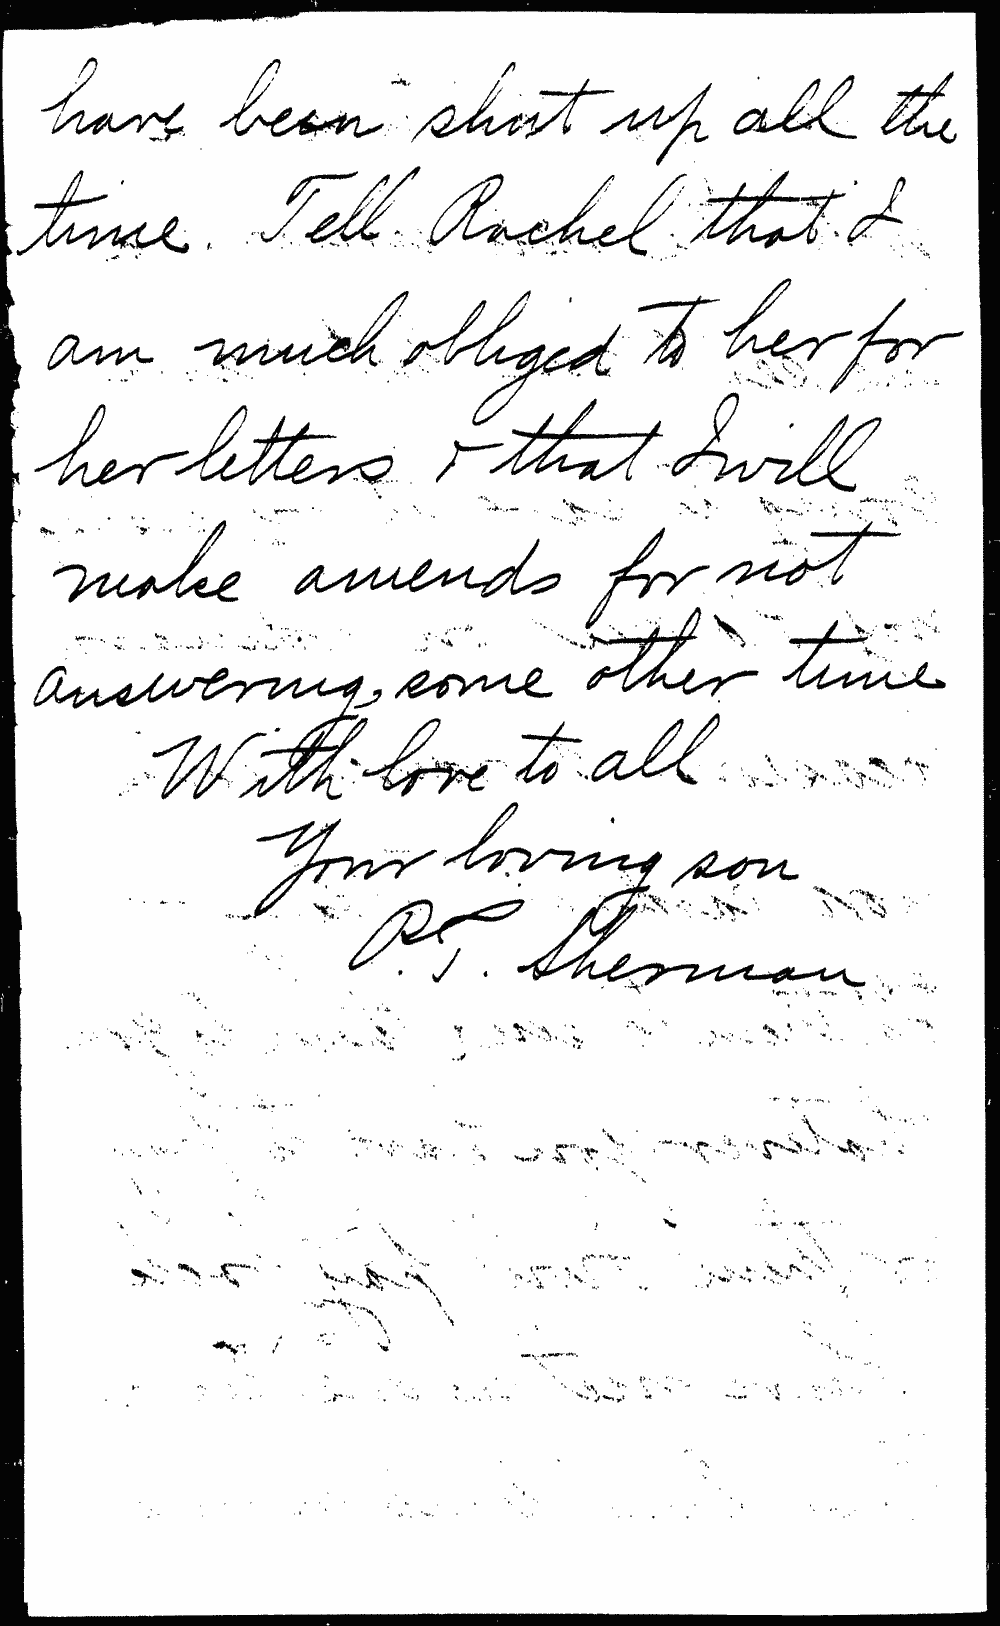 have been shut up all the
time. Tell Rachel that I
am much obliged to her for
her letters & that I will
make amends for not
answering, some other time
With love to all
Your loving son
P.T. Sherman